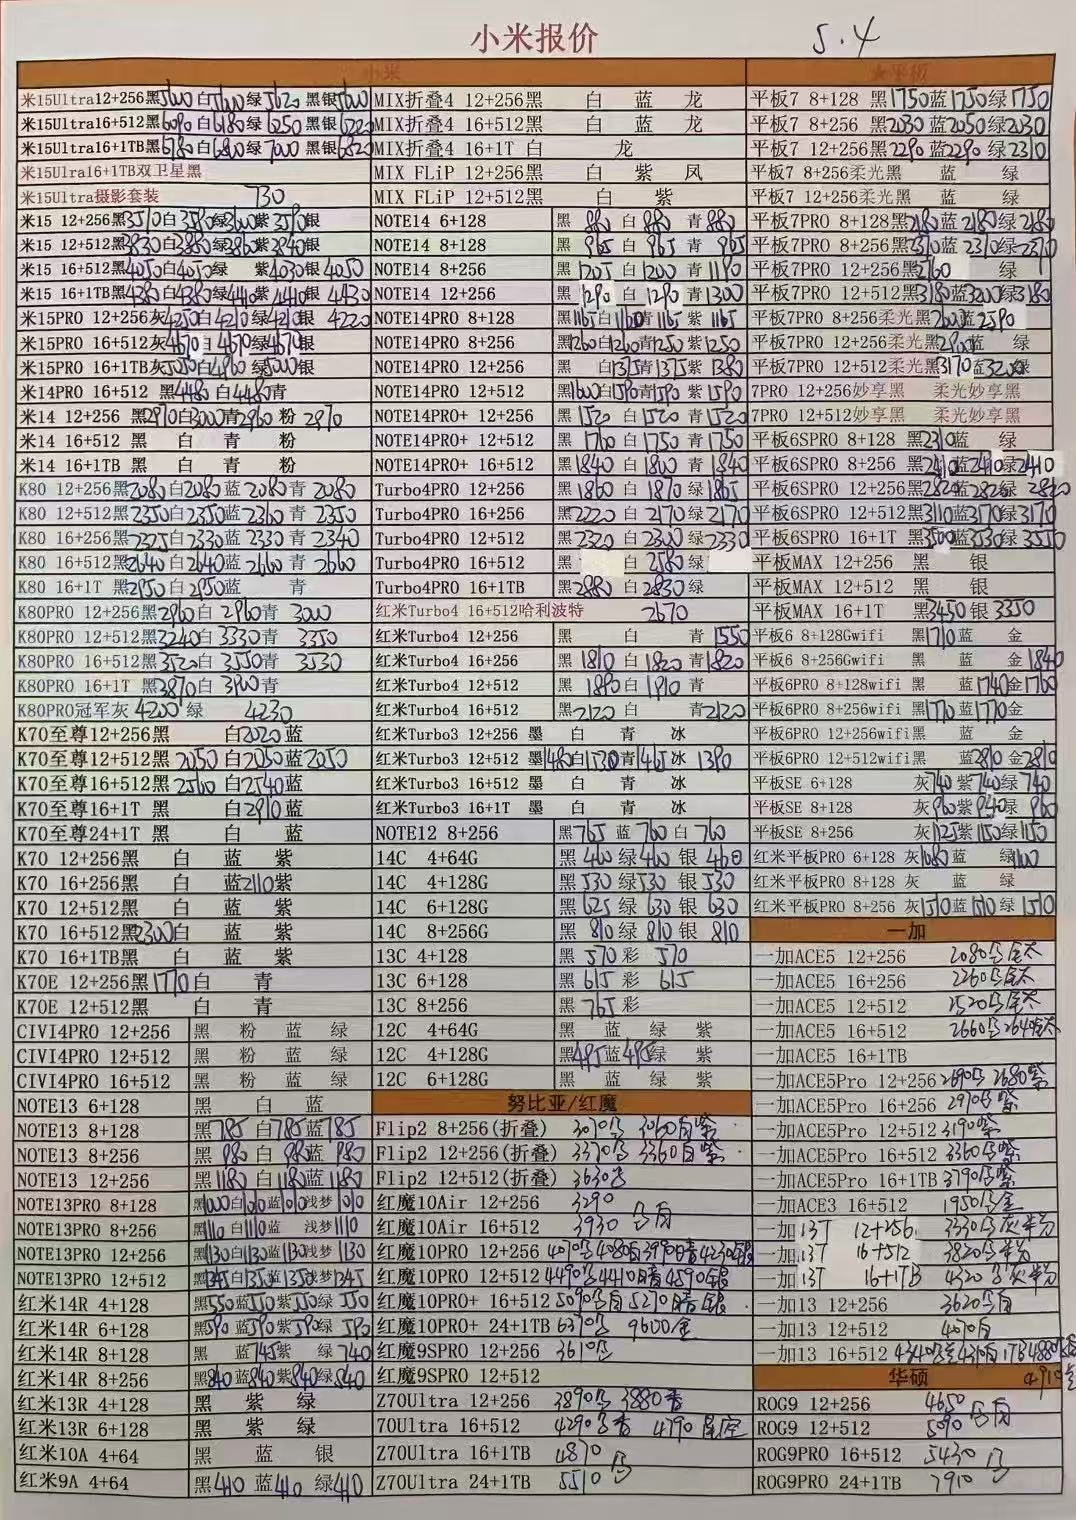 小米报价 5.4
小米
米15Ultra12+256黑5600白5600绿5620黑银5600
米15Ultra16+512黑6090白6180绿6250黑银6220
米15Ultra16+1TB黑6780白6800绿7000黑银6820
米15Ulra16+1TB双卫星黑
米15Ultra摄影套装 730
米15 12+256黑3510白3580绿3600紫3590银
米15 12+512黑3830白3880绿3860紫3840银
米15 16+512黑4050白4050绿 紫4030银 4050
米15 16+1TB黑4380白4380绿4410紫4410银 4430
米15PRO 12+256灰4250白4210绿4210银 4220
米15PRO 16+512灰4670白4670绿4670银
米15PRO 16+1TB灰5050白4960绿5000银
米14PRO 16+512 黑4480白4480青
米14 12+256 黑2970白3000青2960 粉 2970
米14 16+512 黑 白 青 粉
米14 16+1TB 黑 白 青 粉
K80 12+256黑2080白2080蓝2080青 2080
K80 12+512黑2350白2350蓝2360 青 2350
K80 16+256黑2325白2330蓝2330 青 2340
K80 16+512黑2640白2640蓝2660 青 2660
K80 16+1T 黑2950白2950蓝 青
K80PRO 12+256黑2960白2960青 3000
K80PRO 12+512黑2240白3330青 3350
K80PRO 16+512黑3520白3550青 3530
K80PRO 16+1T 黑3870白3900青
K80PRO冠军灰 4200 绿 4230
K70至尊12+256黑 白2020蓝
K70至尊12+512黑 2050白2050蓝2050
K70至尊16+512黑 2560 白2540蓝
K70至尊16+1T 黑 白2910蓝
K70至尊24+1T 黑 白 蓝
K70 12+256黑 白 蓝 紫
K70 16+256黑 白 蓝2110紫
K70 12+512黑 白 蓝 紫
K70 16+512黑2300白 蓝 紫
K70 16+1TB黑 白 蓝 紫
K70E 12+256黑1770白 青
K70E 12+512黑 白 青
CIVI4PRO 12+256 黑 粉 蓝 绿
CIVI4PRO 12+512 黑 粉 蓝 绿
CIVI4PRO 16+512 黑 粉 蓝 绿
NOTE13 6+128 黑 白 蓝
NOTE13 8+128 黑785白785蓝785
NOTE13 8+256 黑980白980蓝980
NOTE13 12+256 黑1180白1180蓝1180
NOTE13PRO 8+128 黑1000白1010蓝1010浅梦1010
NOTE13PRO 8+256 黑1110白1110蓝 浅梦1110
NOTE13PRO 12+256 黑1130白1130蓝1130浅梦1130
NOTE13PRO 12+512 黑1345白1350蓝1350浅梦1345
红米14R 4+128 黑550蓝550紫550绿550
红米14R 6+128 黑590蓝590紫590绿590
红米14R 8+128 黑 蓝745紫 绿740
红米14R 8+256 黑840蓝840紫840绿840
红米13R 4+128 黑 紫 绿
红米13R 4+128 黑 紫 绿
红米10A 4+64 黑 蓝 银
红米9A 4+64 黑410蓝410绿410
MIX折叠4 12+256黑 白 蓝 龙
MIX折叠4 16+512黑 白 蓝 龙
MIX折叠4 16+1T 白 龙
MIX FLiP 12+256黑 白 紫 凤
MIX FLiP 12+512黑 白 紫
NOTE14 6+128 黑 880 白 880 青 880
NOTE14 8+128 黑 965 白 965 青 965
NOTE14 8+256 黑 1205 白 1200 青 1190
NOTE14 12+256 黑 1290 白 1290 青 1300
NOTE14PRO 8+128 黑1165白1160青1165紫1165
NOTE14PRO 8+256 黑1260白1260青1250紫1250
NOTE14PRO 12+256 黑 白1375青1375紫1380
NOTE14PRO 12+512 黑1600白1590青1590紫1590
NOTE14PRO+ 12+256 黑 1520 白 1520 青 1520
NOTE14PRO+ 12+512 黑 1760 白 1750 青 1750
NOTE14PRO+ 16+512 黑 1840 白 1800 青 1840
Turbo4PRO 12+256 黑 1860 白 1870 绿 1865
Turbo4PRO 16+256 黑 2220 白 2170 绿 2170
Turbo4PRO 12+512 黑 2320 白 2300 绿 2330
Turbo4PRO 16+512 黑 白 2580 绿
Turbo4PRO 16+1TB 黑2880 白2830绿
红米Turbo4 16+512哈利波特 2670
红米Turbo4 12+256 黑 白 青1550
红米Turbo4 16+256 黑 1810 白1820青1820
红米Turbo4 12+512 黑 1890白 1910 青
红米Turbo4 16+512 黑2120 白 青2120
红米Turbo3 12+256 墨 白 青 冰
红米Turbo3 12+512 墨1480白1530青1465冰 1390
红米Turbo3 16+512 墨 白 青 冰
红米Turbo3 16+1T 墨 白 青 冰
NOTE12 8+256 黑765 蓝760 白760
14C 4+64G 黑 460 绿460 银 460
14C 4+128G 黑 530 绿530 银 530
14C 6+128G 黑 625 绿 630 银 630
14C 8+256G 黑 810 绿 810 银 810
13C 4+128 黑 570 彩 570
13C 6+128 黑 615 彩 615
13C 8+256 黑 765 彩
12C 4+64G 黑 蓝 绿 紫
12C 4+128G 黑495蓝495绿 紫
12C 6+128G 黑 蓝 绿 紫
努比亚/红魔
Flip2 8+256(折叠) 3070黑 3060白紫
Flip2 12+256(折叠) 3370黑 3360白紫
Flip2 12+512(折叠) 3630
红魔10Air 12+256 3290
红魔10Air 16+512 3930 黑白
红魔10PRO 12+256 4070黑4080白3990暗4230银
红魔10PRO 12+512 4490黑4410暗4590银
红魔10PRO+ 16+512 5090黑白5270暗银
红魔10PRO+ 24+1TB 6370黑 9600/金
红魔9SPRO 12+256 3610黑
红魔9SPRO 12+512
Z70Ultra 12+256 3890黑 3880香
70Ultra 16+512 4290黑香 4790星空
Z70Ultra 16+1TB 4870
Z70Ultra 24+1TB 5510 黑
★平板
平板7 8+128 黑1750蓝1750绿1750
平板7 8+256 黑2030蓝2050绿2030
平板7 12+256黑2290蓝2290 绿2310
平板7 8+256柔光黑 蓝 绿
平板7 12+256柔光黑 蓝 绿
平板7PRO 8+128黑2180蓝2180绿2180
平板7PRO 8+256黑2310蓝2310绿2370
平板7PRO 12+256黑2760 绿
平板7PRO 12+512黑3180蓝3200绿3180
平板7PRO 8+256柔光黑2600蓝2590
平板7PRO 12+256柔光黑2990蓝 绿
平板7PRO 12+512柔光黑3170蓝3200绿
7PRO 12+256妙享黑 柔光妙享黑
7PRO 12+512妙享黑 柔光妙享黑
平板6SPRO 8+128 黑2310蓝 绿
平板6SPRO 8+256 黑2410蓝2410绿2410
平板6SPRO 12+256黑2820蓝2820绿 2820
平板6SPRO 12+512黑3110蓝3170绿3170
平板6SPRO 16+1T 黑3500蓝3530绿 3550
平板MAX 12+256 黑 银
平板MAX 12+512 黑 银
平板MAX 16+1T 黑3450 银 3350
平板6 8+128Gwifi 黑1710蓝 金
平板6 8+256Gwifi 黑 蓝 金1840
平板6PRO 8+128wifi 黑 蓝1740金1760
平板6PRO 8+256wifi 黑1770蓝1770金
平板6PRO 12+256wifi黑 蓝 金
平板6PRO 12+512wifi黑 蓝2810金2810
平板SE 6+128 灰740紫740绿740
平板SE 8+128 灰960紫940绿 960
平板SE 8+256 灰1125紫1150绿1150
红米平板PRO 6+128 灰1080蓝 绿1100
红米平板PRO 8+128 灰 蓝 绿
红米平板PRO 8+256 灰1510蓝1510绿1510
一加
一加ACE5 12+256 2080黑钛
一加ACE5 16+256 2260黑钛
一加ACE5 12+512 2520黑钛
一加ACE5 16+512 2660黑2640钛
一加ACE5 16+1TB
一加ACE5Pro 12+256 2690黑2680紫
一加ACE5Pro 16+256 2970黑紫
一加ACE5Pro 12+512 3190紫
一加ACE5Pro 16+512 3360黑紫
一加ACE5Pro 16+1TB 3790黑紫
一加ACE3 16+512 1950黑金
一加 13T 12+256 3330黑灰粉
一加 13T 16+512 3820黑粉
一加 13T 16+1TB 4320黑灰粉
一加13 12+256 3620黑白
一加13 12+512 4070白
一加13 16+512 4340黑蓝4310白1TB4880
4910
华硕
ROG9 12+256 4650
ROG9 12+512 5090 黑白
ROG9PRO 16+512 5430 黑
ROG9PRO 24+1TB 7910